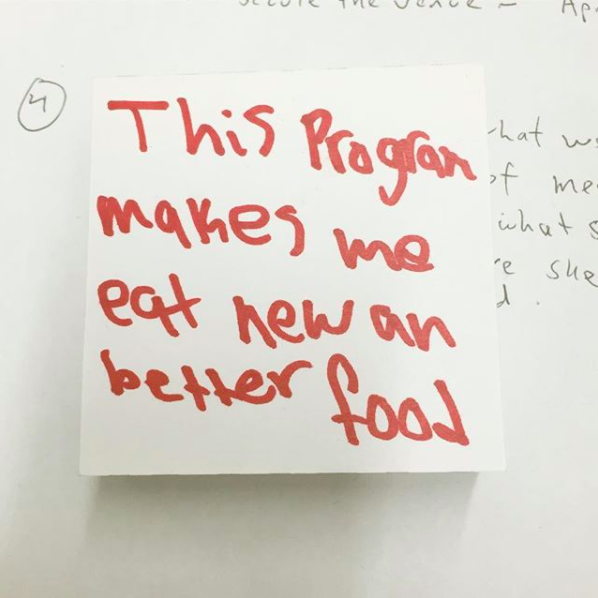 secure the venue - Ap
4
This Program
makes me
eat new an
better food
hat w
of me
what s
e she
d.